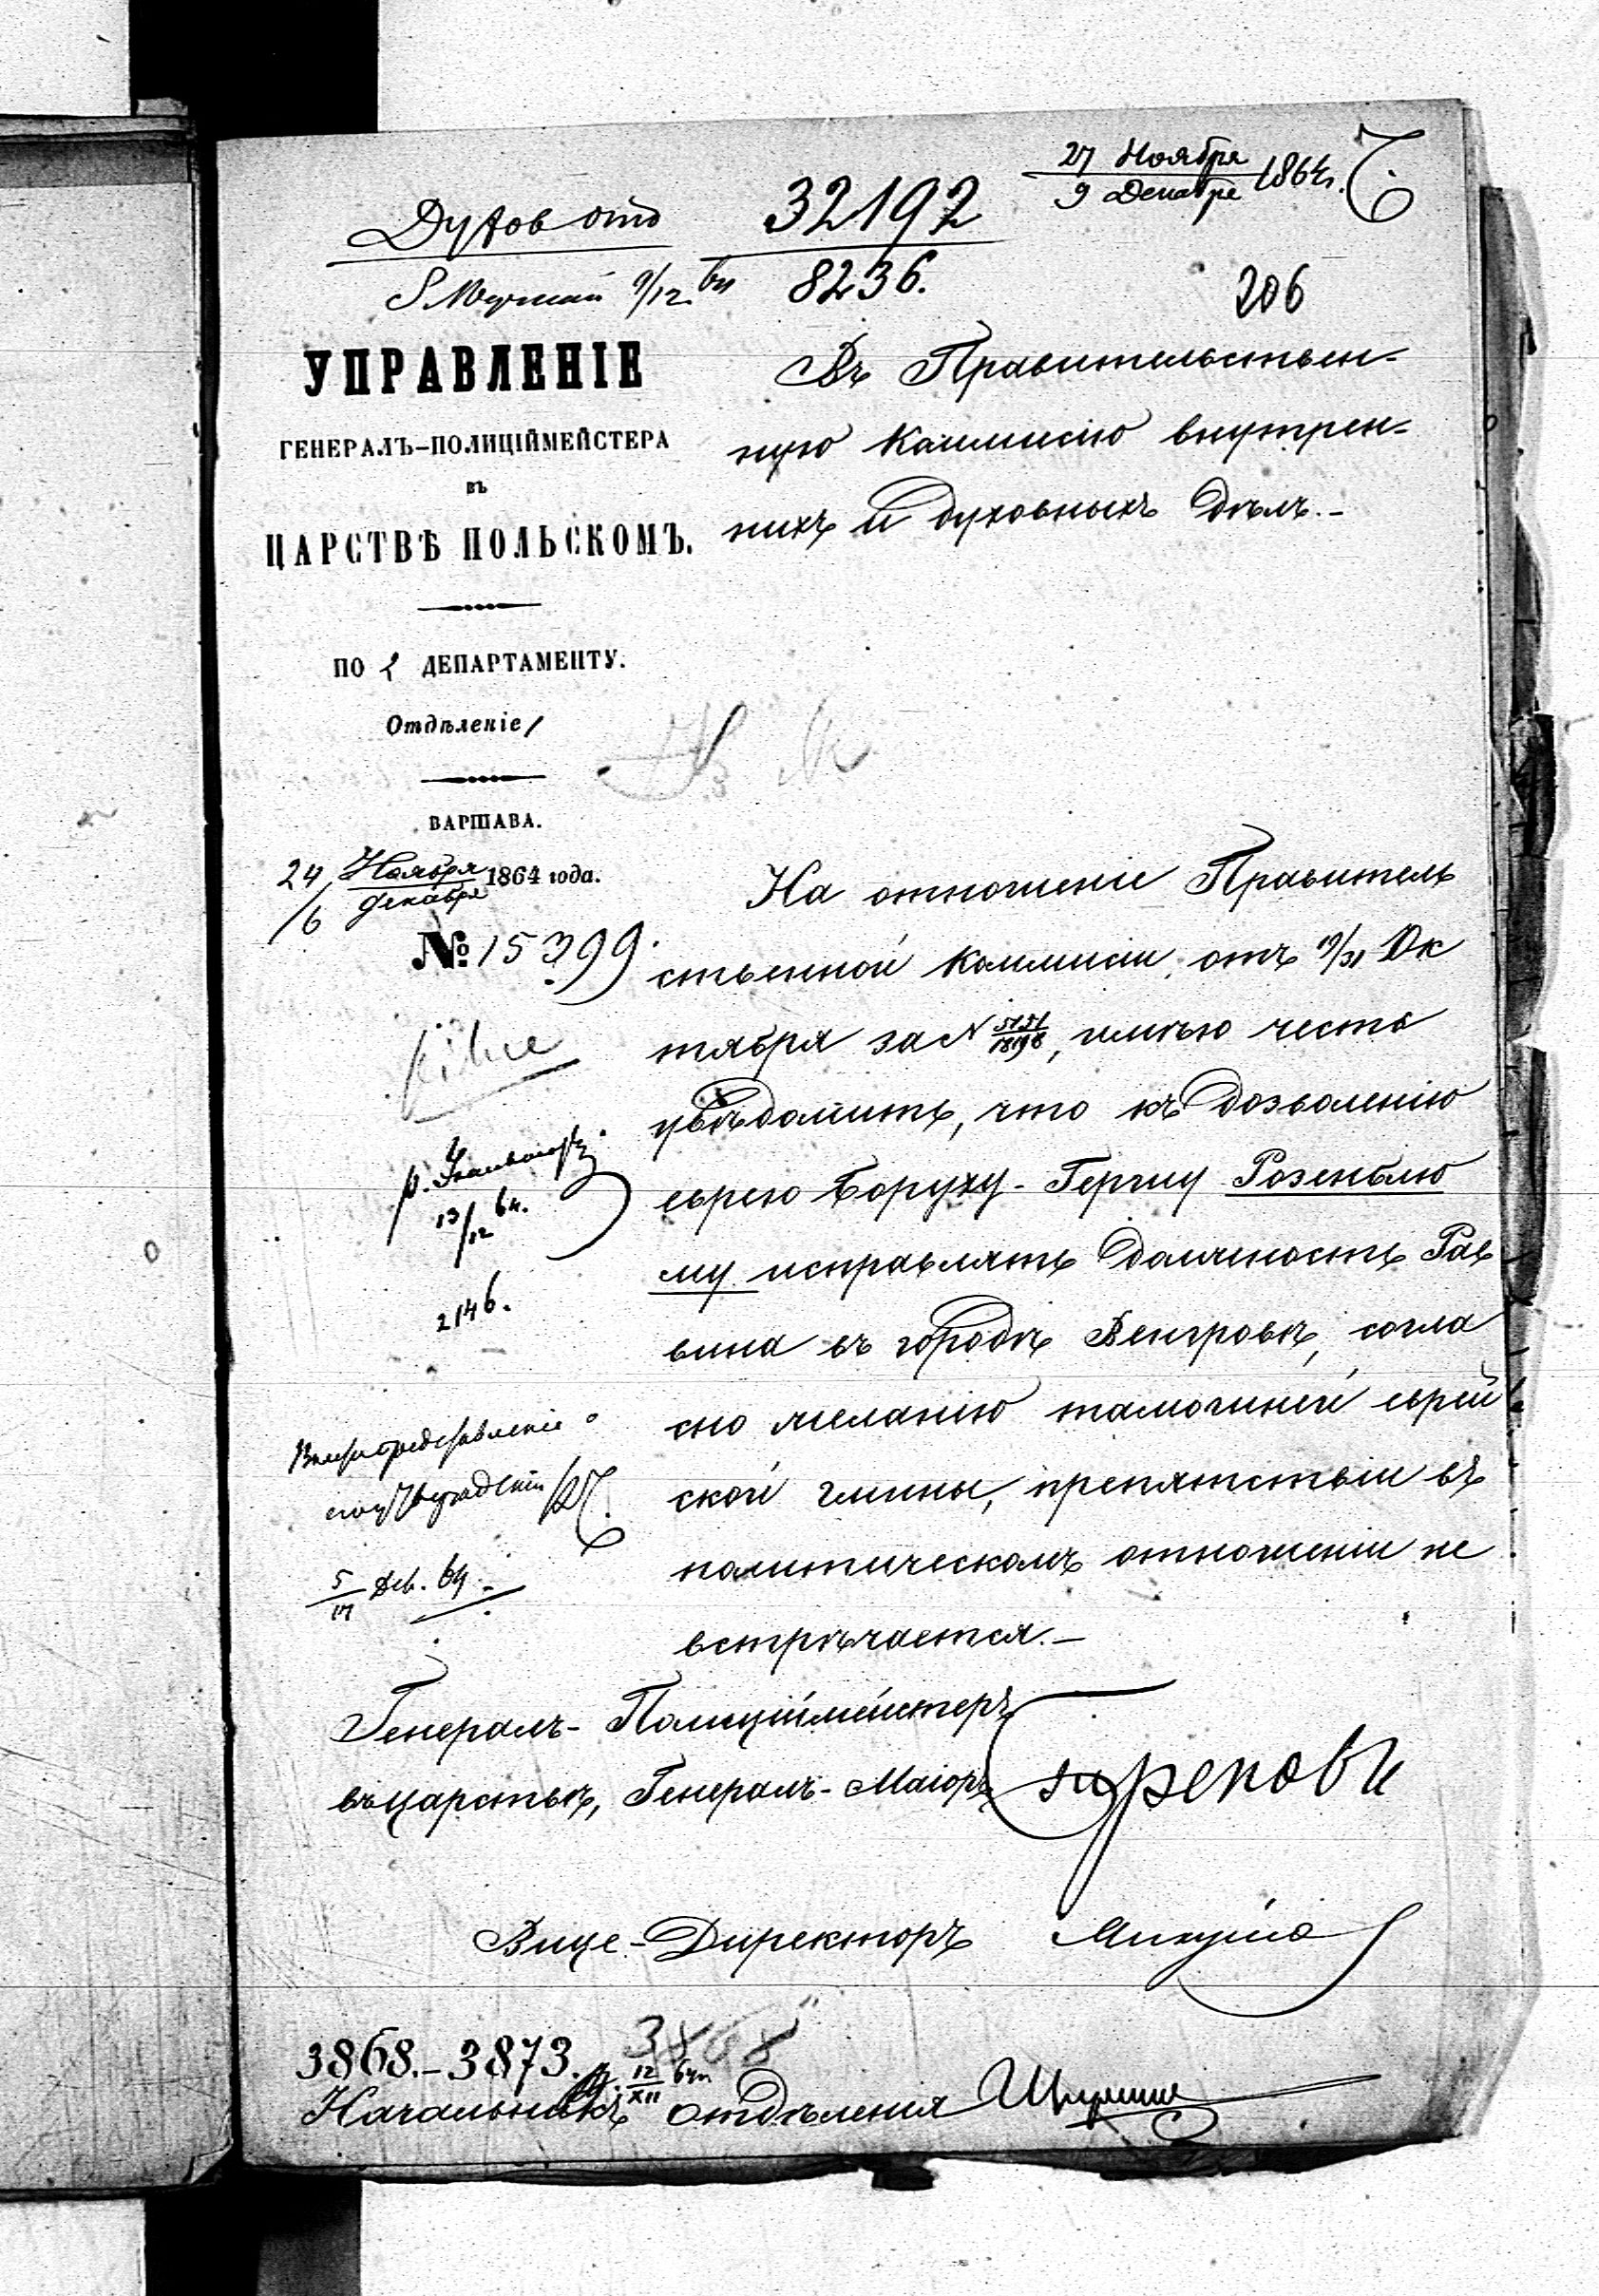 27 Ноября
9 Декабря 1864 г.
Духов отд
32192
8236.
9/12
206
УПРАВЛЕНІЕ
ГЕНЕРАЛЪ-ПОЛИЦІЙМЕЙСТЕРА
ВЪ
ЦАРСТВѢ ПОЛЬСКОМЪ.
ПО 2 ДЕПАРТАМЕНТУ.
Отдѣленіе 1
ВАРШАВА.
24 Ноября
/6 декабря 1864 года.
№ 15399.
Въ Правительствен-
ную Коммисію внутрен-
нихъ и духовныхъ дѣлъ.-
На отношеніе Правитель
ственной Коммисіи, отъ 19/31 Ок
тября за N, имѣю честь
увѣдомить, что къ дозволенію
еврею Боруху-Гершу Розенблю
му исправлять должность Рав
вина въ городѣ Венгровѣ, согла
сно желанію тамошней еврей
ской гмины, препятствіи въ
политическомъ отношеніи не
встрѣчается.-
13/12 64.
2146.
5/17 Дек. 64.
Генералъ-Полиціймейстеръ
въ царствѣ, Генералъ-Маіоръ
Вице-Директоръ
3868.-3873. 3868
12/XII 64
Начальникъ отдѣленія